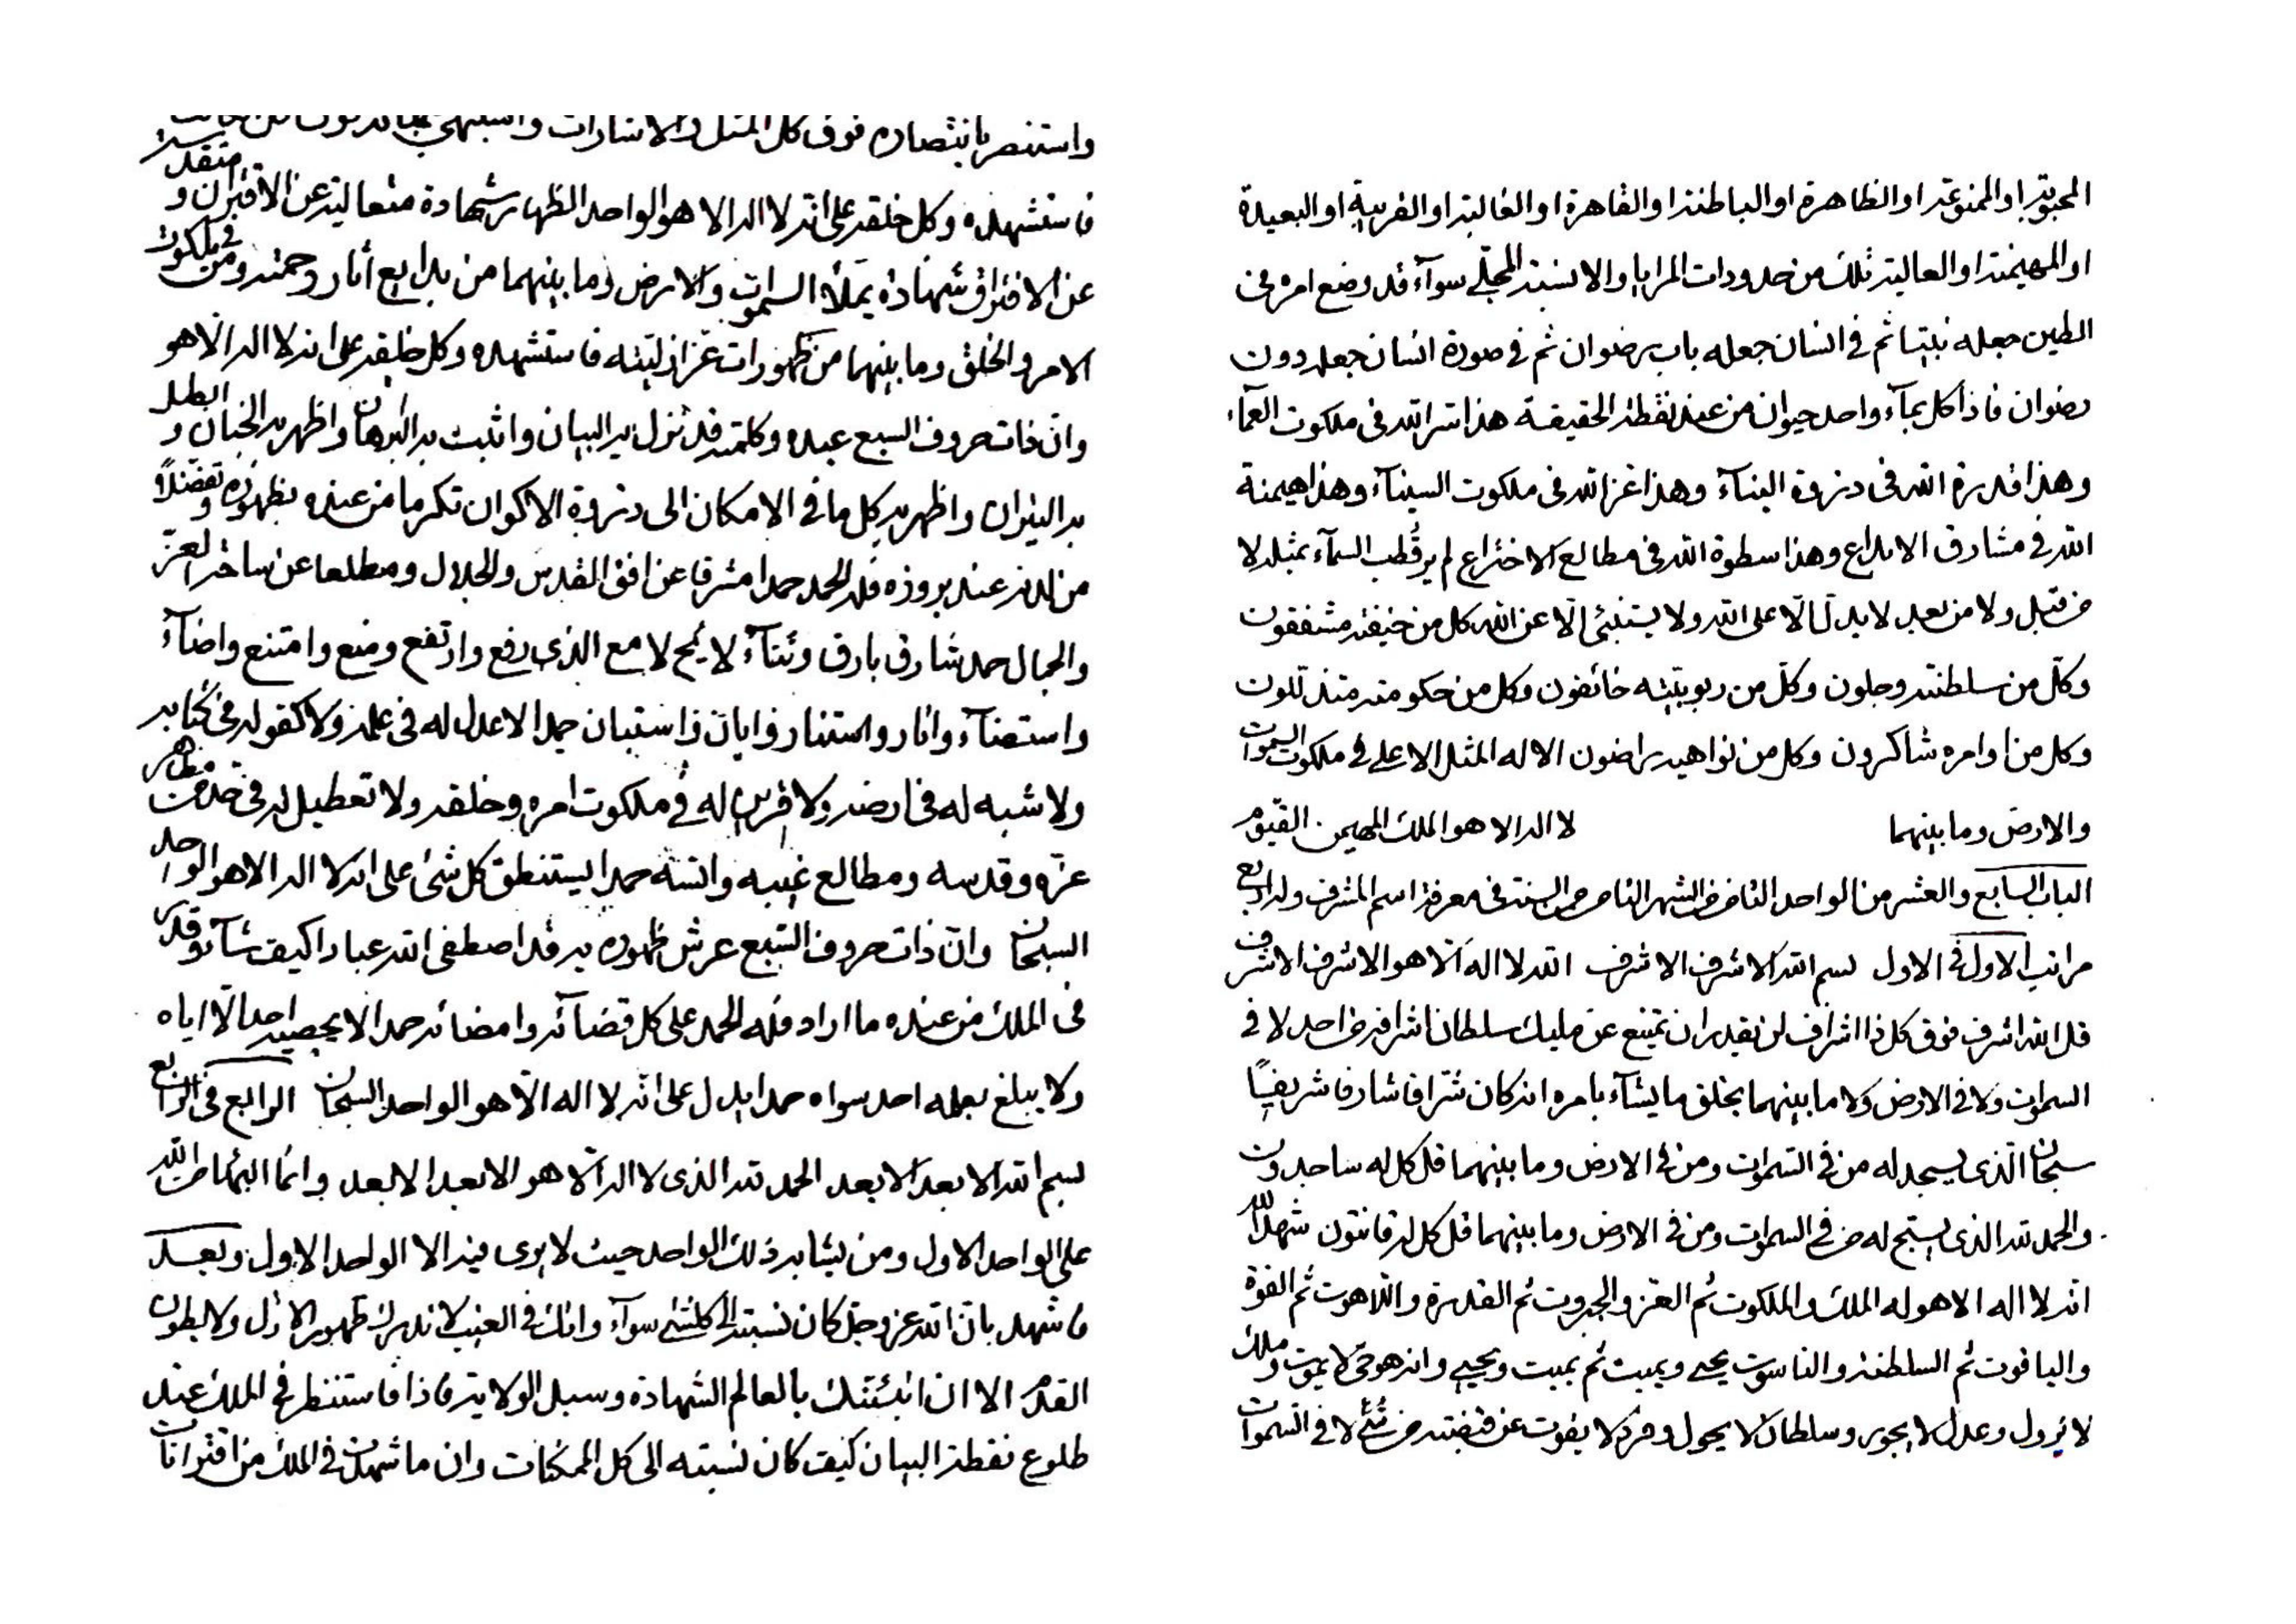 المحبوبة او الممنوعة او الظاهرة او الباطنة او القاهرة او الغالبة او القريبة او البعيدة
او المهيمنة او العالية تلك من حدودات المرايا والا نسبة المجلّي سوآء قد وضع امره فى
الطين جعله نبيّا ثم فى انسان جعله باب رضوان ثم فى صورة انسان جعله دون
رضوان فاذا كل بمآء واحد حيوان من عند نقطة الحقيقة هذا سر الله فى ملكوت العمآء
وهذا قدرة الله فى ذروة البنآء وهذا عز الله فى ملكوت السينآء وهذا هيمنة
الله فى مشارق الابداع وهذا سطوة الله فى مطالع الاختراع لم ير قطب السمآء بمثله لا
من قبل ولا من بعد لا يدل الّا على الله ولا يستنبئ الّا عن الله كل من خيفته مشفقون
وكلّ من سلطنته وجلون وكلّ من ربوبيّته خائفون وكل من حكومته متذللون
وكل من اوامره شاكرون وكل من نواهيه راضون الا له المثل الاعلى فى ملكوت السموات
والارض وما بينهما لا اله الا هو الملك المهيمن القيّوم
الباب السابع والعشر من الواحد الثامن من الشهر الثامن من السنة فى معرفة اسم المشرف وله اربع
مراتب الاول فى الاول بسم الله الاشرف الاشرف الله لا اله الّا هو الاشرف الاشرف
قل الله اشرف فوق كل ذا اشراف لن يقدر ان يمتنع عن مليك سلطان اشرافه من احد لا فى
السموات ولا فى الارض ولا ما بينهما يخلق ما يشآء بامره انه كان شرّافا شارفا شريفا
سبحان الّذى يسجد له من فى السموات ومن فى الارض وما بينهما قل كل له ساجدون
والحمد لله الذى يسبّح له من فى السموات ومن فى الارض وما بينهما قل كل له قانتون شهد الله
انه لا اله الا هو له الملك والملكوت ثم العز والجبروت ثم القدرة واللاهوت ثم القوة
والياقوت ثم السلطنة والناسوت يحيى ويميت ثم يميت ويحيى وانه هو حىّ لا يموت وملك
لا يزول وعدل لا يجور وسلطان لا يحول وفرد لا يفوت عن قبضته من شئ لا فى السموات
واستنصر بانتصاره فوق كل المثل والاشارات
فاستشهده وكل خلقه على انه لا اله الا هو الواحد الظهار شهادة متعالية عن الاقتران و متقدسة
عن الافتراق شهادة يملأ السموات والارض وما بينهما من بدايع آثار رحمته ومن فى ملكوت
الامر والخلق وما بينهما من ظهورات عز ازليّته فاستشهده وكل خلقه على انه لا اله الّا هو
وانّ ذات حروف السبع عبده وكلمته قد نزل به البيان واثبت به البرهان واظهر به الجنان و ابطل
به النيران واظهر به كل ما فى الامكان الى ذروة الاكوان تكرما من عنده بظهوره و تفضّلاً
من لدنه عند بروزه فله الحمد حمدا مشرقا عن افق القدس والجلال ومطلعا عن ساحة العز
والجمال حمد شارق بارق وثنآء لايح لامع الذى رفع وارتفع ومنع وامتنع واضآء
واستضآء وانار واستنار وابان واستبان حمدا لا عدل له فى علمه ولا كفو له فى كتابه
ولا شبه له فى ارضه ولا قرين له فى ملكوت امره وخلقه ولا تعطيل له فى مظاهر
عزّه وقدسه ومطالع غيبه وانسه حمدا يستنطق كل شئ على انه لا اله الا هو الواحد
السبحان وانّ ذات حروف السّبع عرش ظهوره به قد اصطفى الله عبادا كيف شآء وقدر
فى الملك من عنده ما اراد فله الحمد على كل قضآئه وامضائه حمدا لا يحصيه احد الّا اياه
ولا يبلغ بعلمه احد سواه حمدا يدل على انّه لا اله الّا هو الواحد السبحان الرابع فى الرابع
بسم الله الابعد الابعد الحمد لله الذى لا اله الّا هو الابعد الابعد وانّما البهآء من الله
على الواحد الاول ومن يشابه ذلك الواحد حيث لا يرى فيه الا الواحد الاول وبعد
فاشهد بان الله عز وجل كان نسبته الى كلشئ سوآء وانك فى الغيب لا تدرك ظهور الازل ولا بطون
القدم الا ان انبئتك بالعالم الشهادة وسبل الولاية فاذا فاستنظر فى الملك عند
طلوع نقطة البيان كيف كان نسبته الى كل الممكنات وان ما شهدت فى الملك من اقترانات